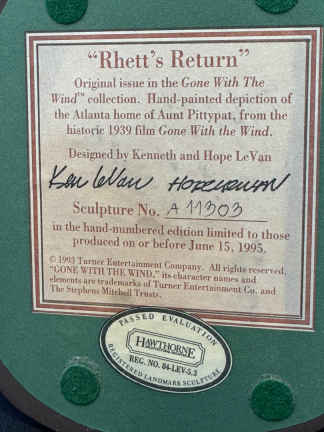 “Rhett’s Return”
Original issue in the Gone With The
Wind™ collection. Hand-painted depiction of
the Atlanta home of Aunt Pittypat, from the
historic 1939 film Gone With the Wind.
Designed by Kenneth and Hope LeVan
Ken LeVan Hope LeVan
Sculpture No. A 11903
in the hand-numbered edition limited to those
produced on or before June 15, 1995.
© 1993 Turner Entertainment Company. All rights reserved.
“GONE WITH THE WIND,” its character names and
elements are trademarks of Turner Entertainment Co. and
The Stephens Mitchell Trusts.
PASSED EVALUATION
HAWTHORNE
REG. NO. 84-LEV-5.3
REGISTERED LANDMARK SCULPTURE